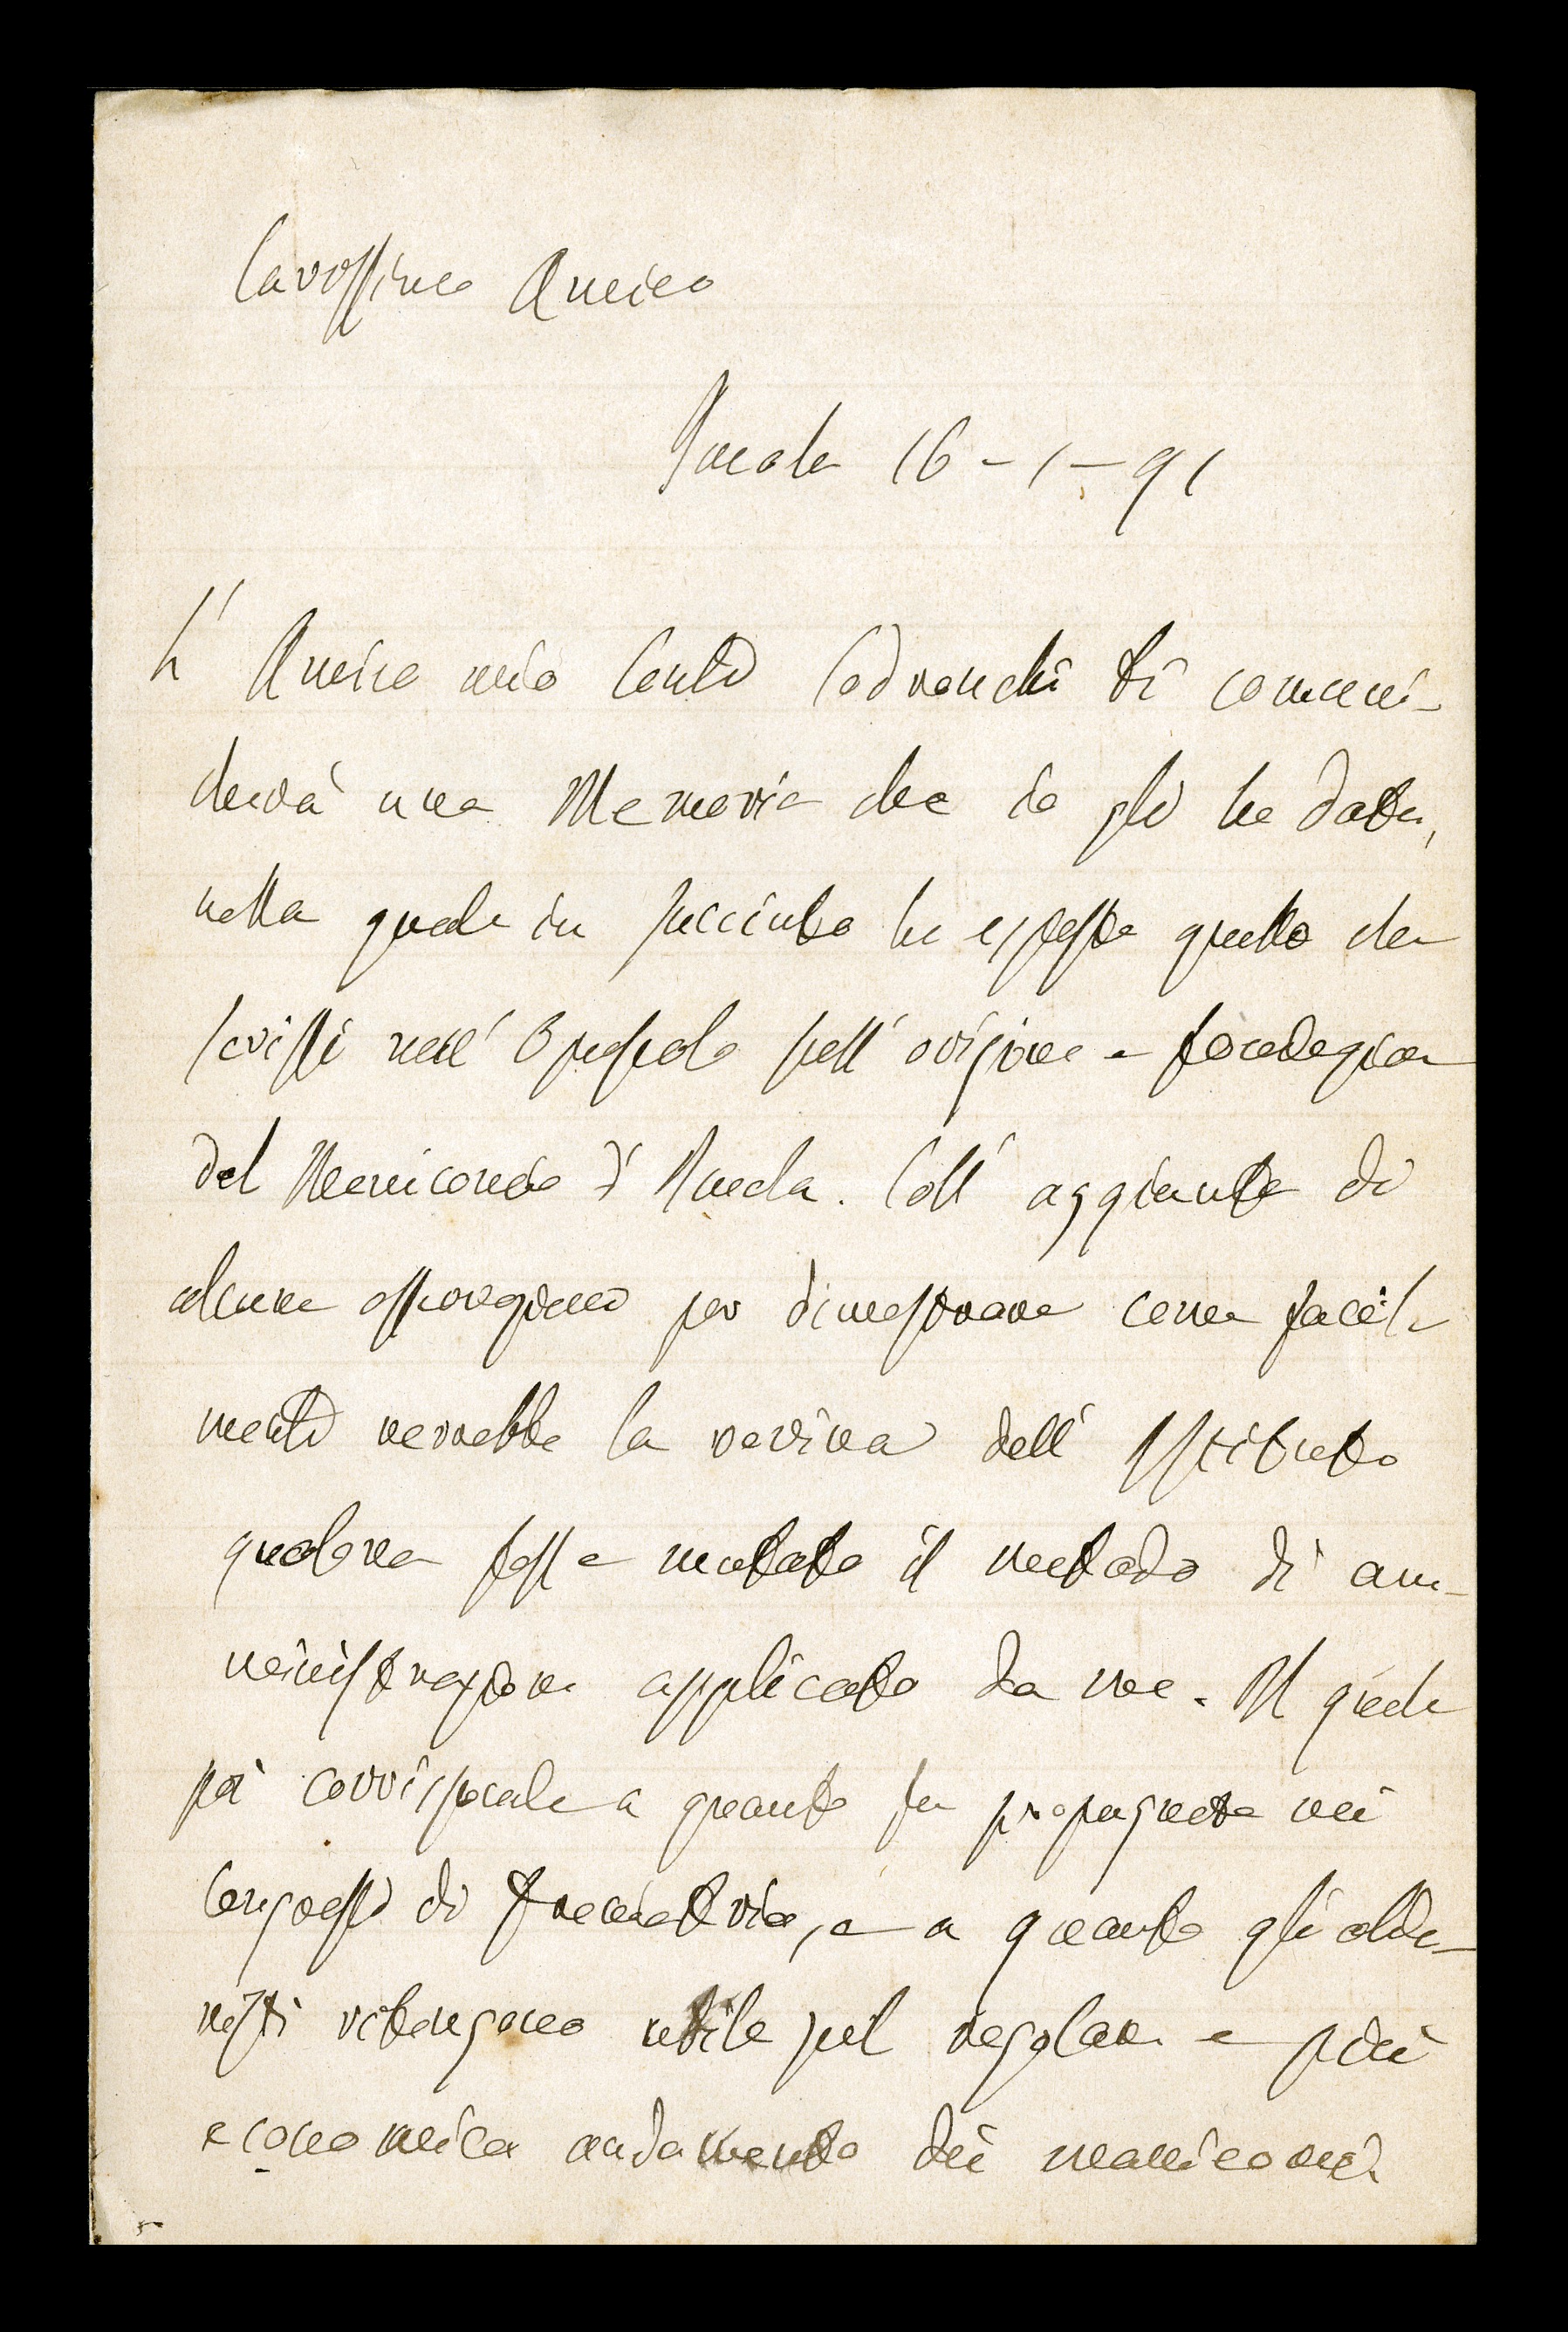 Carissimo Amico
Imola 16-1-91
L' Amico mio Conte Codronchi ti comuni-
cherà una Memoria che io gli ho data,
nella quale in succinto ho esposto quello che
scrissi nell' Opuscolo sull' origine e fondazione
del Manicomio d' Imola. Coll' aggiunta di
alcune osservazioni per dimostrare come facil-
mente verrebbe la rovina dell' Istituto
qualora fosse mutato il metodo di am-
ministrazione applicato da me. Il quale
poi corrisponde a quanto fu propugnato nei
Congressi di Freniatria, e a quanto gli alie-
nisti ritengono utile pel regolare e più
economico andamento dei manicomi.